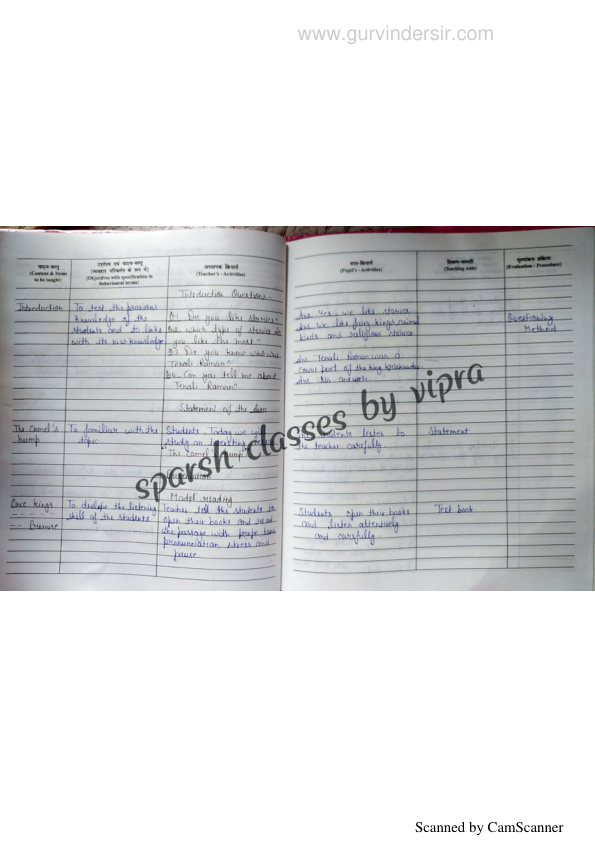 www.gurvindersir.com
पाठ्य-वस्तु
(Content & Items
to be taught)
उद्देश्य एवं पाठ्य-वस्तु
(व्यवहार परिवर्तन के रूप में)
(Objectives with specification in
behavioural terms)
अध्यापक क्रियायें
(Teacher's - Activities)
छात्र-क्रियायें
(Pupil's - Activities)
शिक्षण-सामग्री
(Teaching Aids)
मूल्यांकन प्रक्रिया
(Evaluation - Procedure)
Introduction Questions -
Introduction
To test the previous
knowledge of the
students and to links
with its new knowledge
Q1 Do you like stories?
Q2 which type of stories do
you like the most?
Q3 Do you know who was
Tenali Raman?
Q4 Can you tell me about
Tenali Raman?
Ans Yes, we like stories
Ans We like fairy kings, animal
birds and religious stories
Ans Tenali Raman was a
court poet of the king
Ans No answer.
Questioning
Method
Statement of the Aim
The Camel's
hump
To familiar with the
topic
Students, Today we will
study an
The Camel's hump
students listen to
the teacher carefully.
Statement
Model reading
Once kings
Bearnise
To develope the listening
skill of the students
Teacher tell the students to
open their books and read
the passage with proper
pronunciation, stress and
pause.
Students open their books
and listen attentively
and carefully.
Text book
sparsh classes by vipra
Scanned by CamScanner